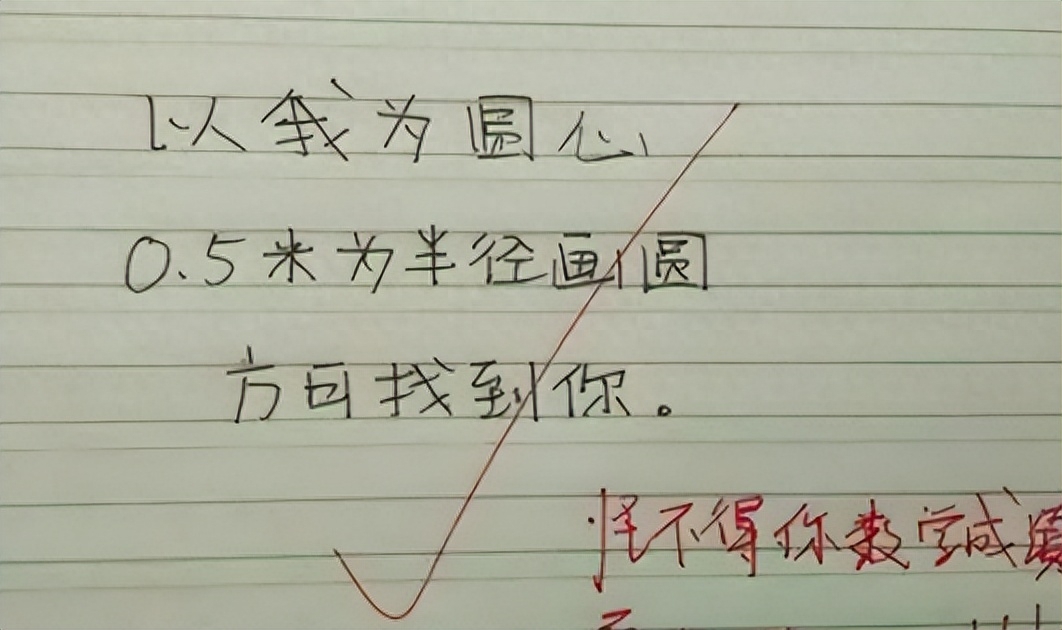 以我为圆心
0.5米为半径画圆
方可找到你。
怪不得你数学成绩